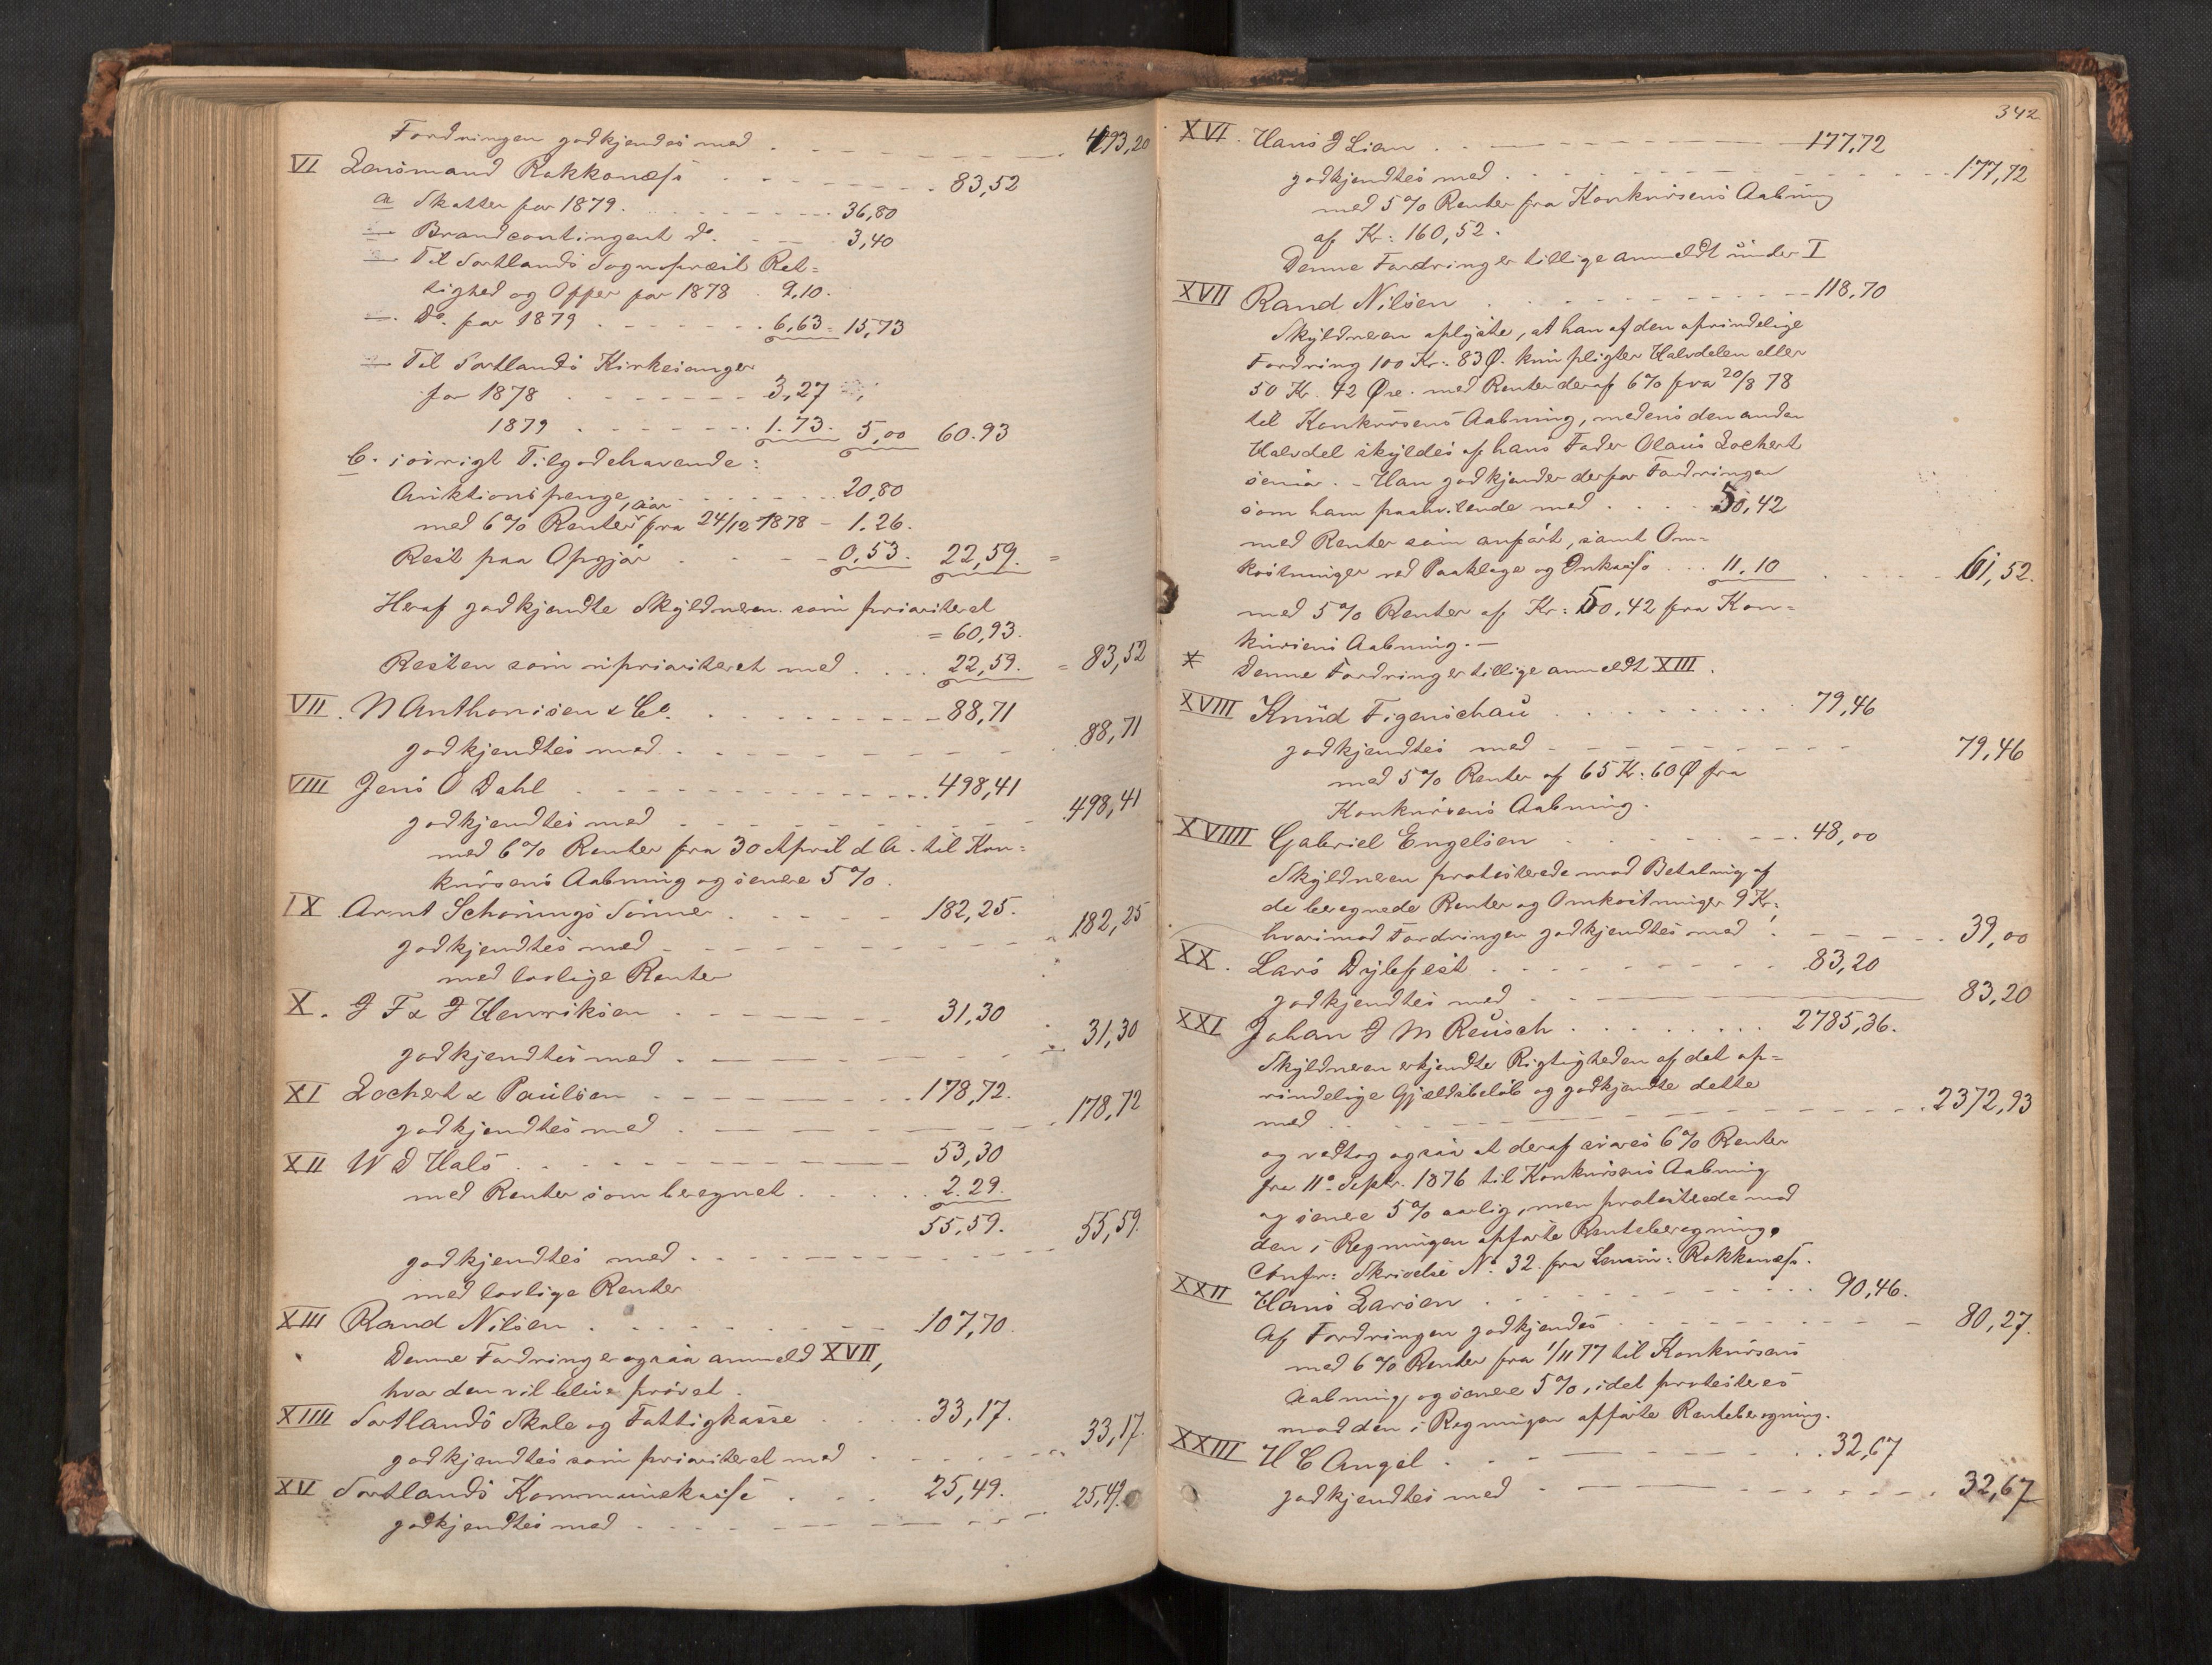 Fordringen godkjendes med . 493,20
VI Lensmand Rokkonæss 83,52
a Skatter for 1879. 36,80
Brandcontingent do. 3,40
Til Sortlands Sognepræst Ret=
tighed og Offer for 1878 . 9,10.
Do. for 1879 6,63 = 15,73
Til Sortlands Kirkesanger
for 1878 3,27
1879 1.73. 5,00 60.93
b. iøvrigt Tilgodehavende:
Auktionspenge 20,80
aar
med 6 % Renter fra 24/12 1878 - 1.26.
Rest paa Opgjør 0,53. 22,59. =
Heraf godkjendte Skyldneren som prioriteret
= 60,93.
Resten som uprioriteret med 22,59. = 83,52
VII. N Anthonisen & Co. 88,71
godkjendtes med 88,71
VIII Jens O Dahl 498,41
godkjendtes med 498,41
med 6 % Renter fra 30 April d A. til Kon=
kursens Aabning og senere 5 %.
IX Arnt Schønings Sønner 182,25.
godkjendtes med 182,25
med lovlige Renter
X. J F & J Henriksen 31,30
godkjendtes med 31,30
XI Lochert & Paulsen 178,72.
godkjendtes med 178,72
XII W D Hals 53,30
med Renter som beregnet 2.29.
55,59. 55,59.
godkjendtes med
med lovlige Renter
XIII Rand Nilsen 107,70
Denne Fordring er ogsaa anmeld XVII,
hvor den vil blive prøvet.
XIIII Sortlands Skole og Fattigkasse 33,17.
godkjendtes som prioriteret med 33,17.
XV Sortlands Kommunekasse 25,49.
godkjendtes med 25,49.
342
XVI. Hans J Lian 177,72
godkjendtes med 177,72
med 5 % Renter fra Konkursens Aabning
af Kr: 160,52.
Denne Fordring er tillige anmeldt under I
XVII Rand Nilsen 118,70
Skyldneren oplyste, at han af den oprindelige
Fordring 100 Kr: 83 Ø. kun pligter Halvdelen eller
50 Kr. 42 Øre. med Renter deraf 6 % fra 20/8 78
til Konkursens Aabning, medens den anden
Halvdel skyldes af hans Fader Olaus Lochert
senior. - Han godkjender derfor Fordringen
som ham paahvilende med 50,42
med Renter som anført, samt Om=
kostninger ved Paaklage og Inkasso 11.10 61,52.
med 5 % Renter af Kr: 50,42 fra Kon=
kursens Aabning. -
* Denne Fordring er tillige anmeldt XIII.
XVIII Knud Figenschau 79,46
godkjendtes med 79,46
med 5 % Renter af 65 Kr: 60 Ø fra
Konkursens Aabning.
XVIIII Gabriel Engelsen 48,00
Skyldneren protesterede mod Betaling af
de beregnede Renter og Omkostninger 9 Kr;
hvorimod Fordringen godkjendtes med 39,00
XX. Lars Dybfest 83,20
godkjendtes med 83,20
XXI Johan J M Reusch 2785,36.
Skyldneren erkjendte Rigtigheden af det op=
rindelige Gjældsbeløb og godkjendte dette
med 2372,93
og vedtog ogsaa at deraf svares 6 % Renter
fra 11te Septr. 1876 til Konkursens Aabning
og senere 5 % aarlig, men protesterede mod
den i Regningen opførte Renteberegning.
Confr: Skrivelse No. 32 fra Lensm: Rokkonæss.
XXII Hans Larsen 90,46.
Af Fordringen godkjendes 80,27.
med 6 % Renter fra 1/11 77 til Konkursens
Aabning, og senere 5 %, idet protesteres
mod den i Regningen opførte Renteberegning.
XXIII H C Angel 32,67
godkjendtes med 32,67